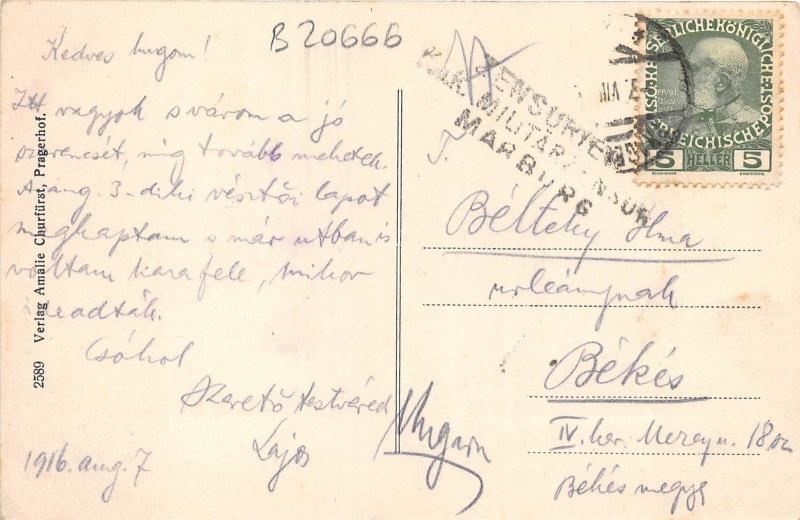 B 20666
Kedves hugom!
Itt vagyok s várom a jó
szerencsét, míg tovább mehetek.
A aug. 3-diki lapot
megkaptam s már utban is
voltam hazafele, mikor
Csókol
Szerető testvéred
Lajos
1916. aug. 7
2589 Verlag Amalie Churfürst, Pragerhof.
ZENSURIERT
K.u.K. MILITÄRZENSUR
MARBURG
KAISERLICHE KÖNIGLICHE
ÖSTERREICHISCHE POST
5 HELLER 5
T.
Bélteky Ilma
urleánynak
Békés
IV. ker. Mezey u. 18 sz
Békés megye
Ungarn